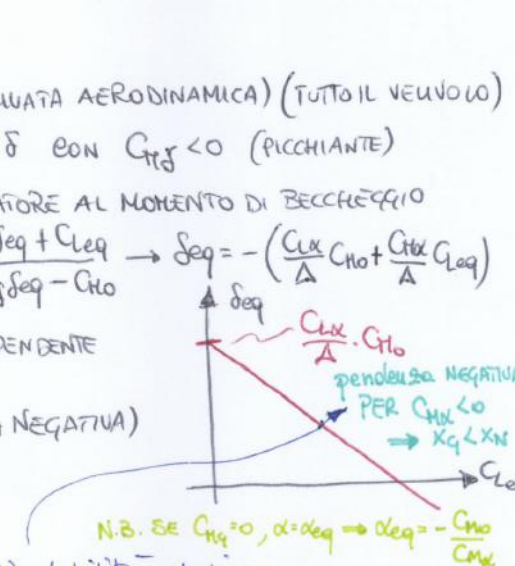 AERODINAMICA) (TUTTO IL VELIVOLO)
δ CON C_Mδ < 0 (PICCHIANTE)
AL MOMENTO DI BECCHEGGIO
δeq + CLeq
δeq - CM0
→ δeq = -(CLα/Δ CM0 + CMα/Δ CLeq)
δeq
CLα/Δ · CM0
pendenza NEGATIVA
PER CMα < 0
⇒ XG < XN
NEGATIVA)
N.B. SE CMq = 0, α = αeq ⇒ αeq = - CM0/CMα